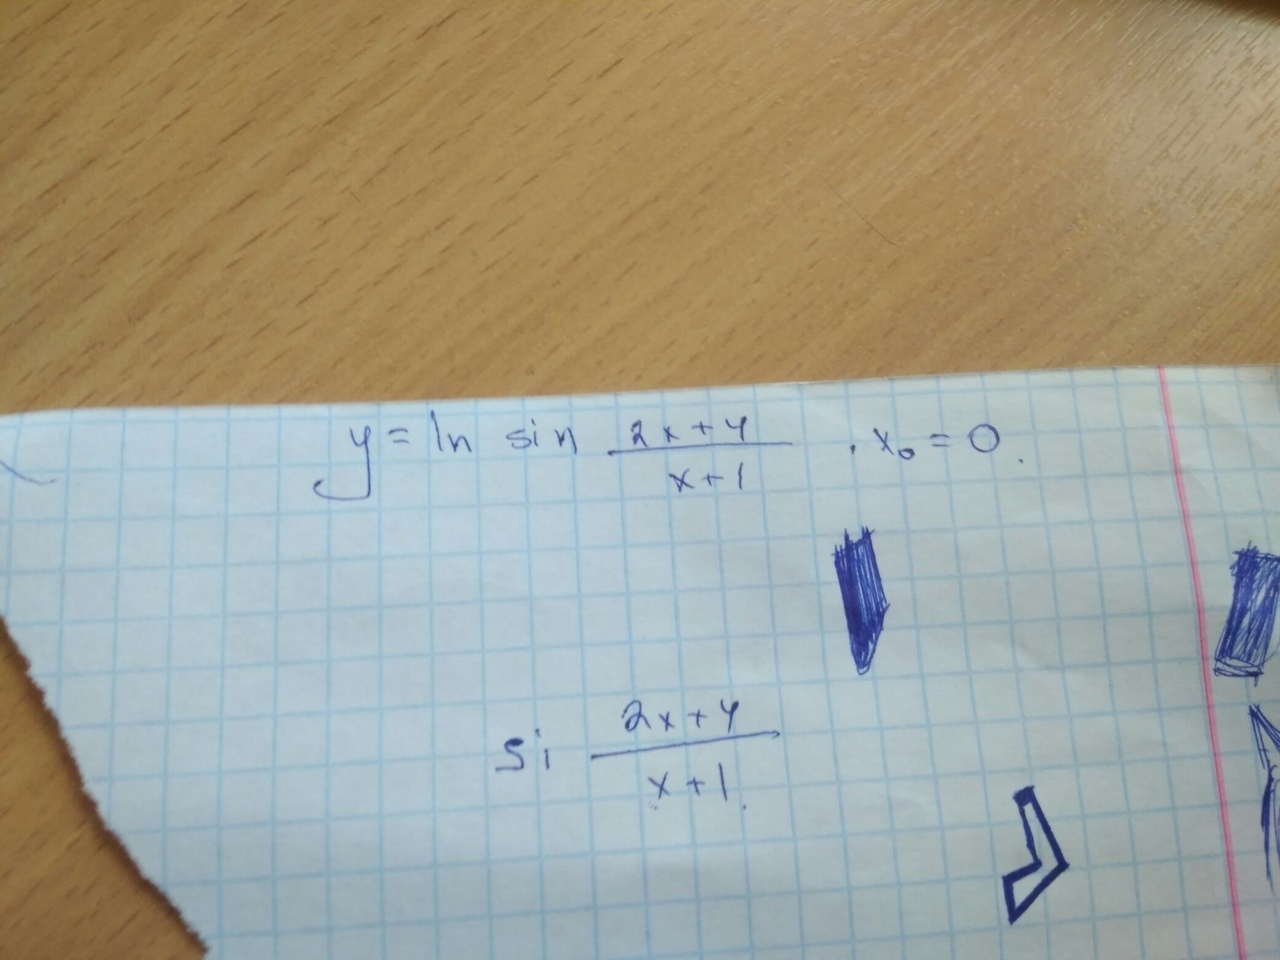 y = ln sin (2x+4)/(x+1) . x₀ = 0.
si (2x+4)/(x+1)